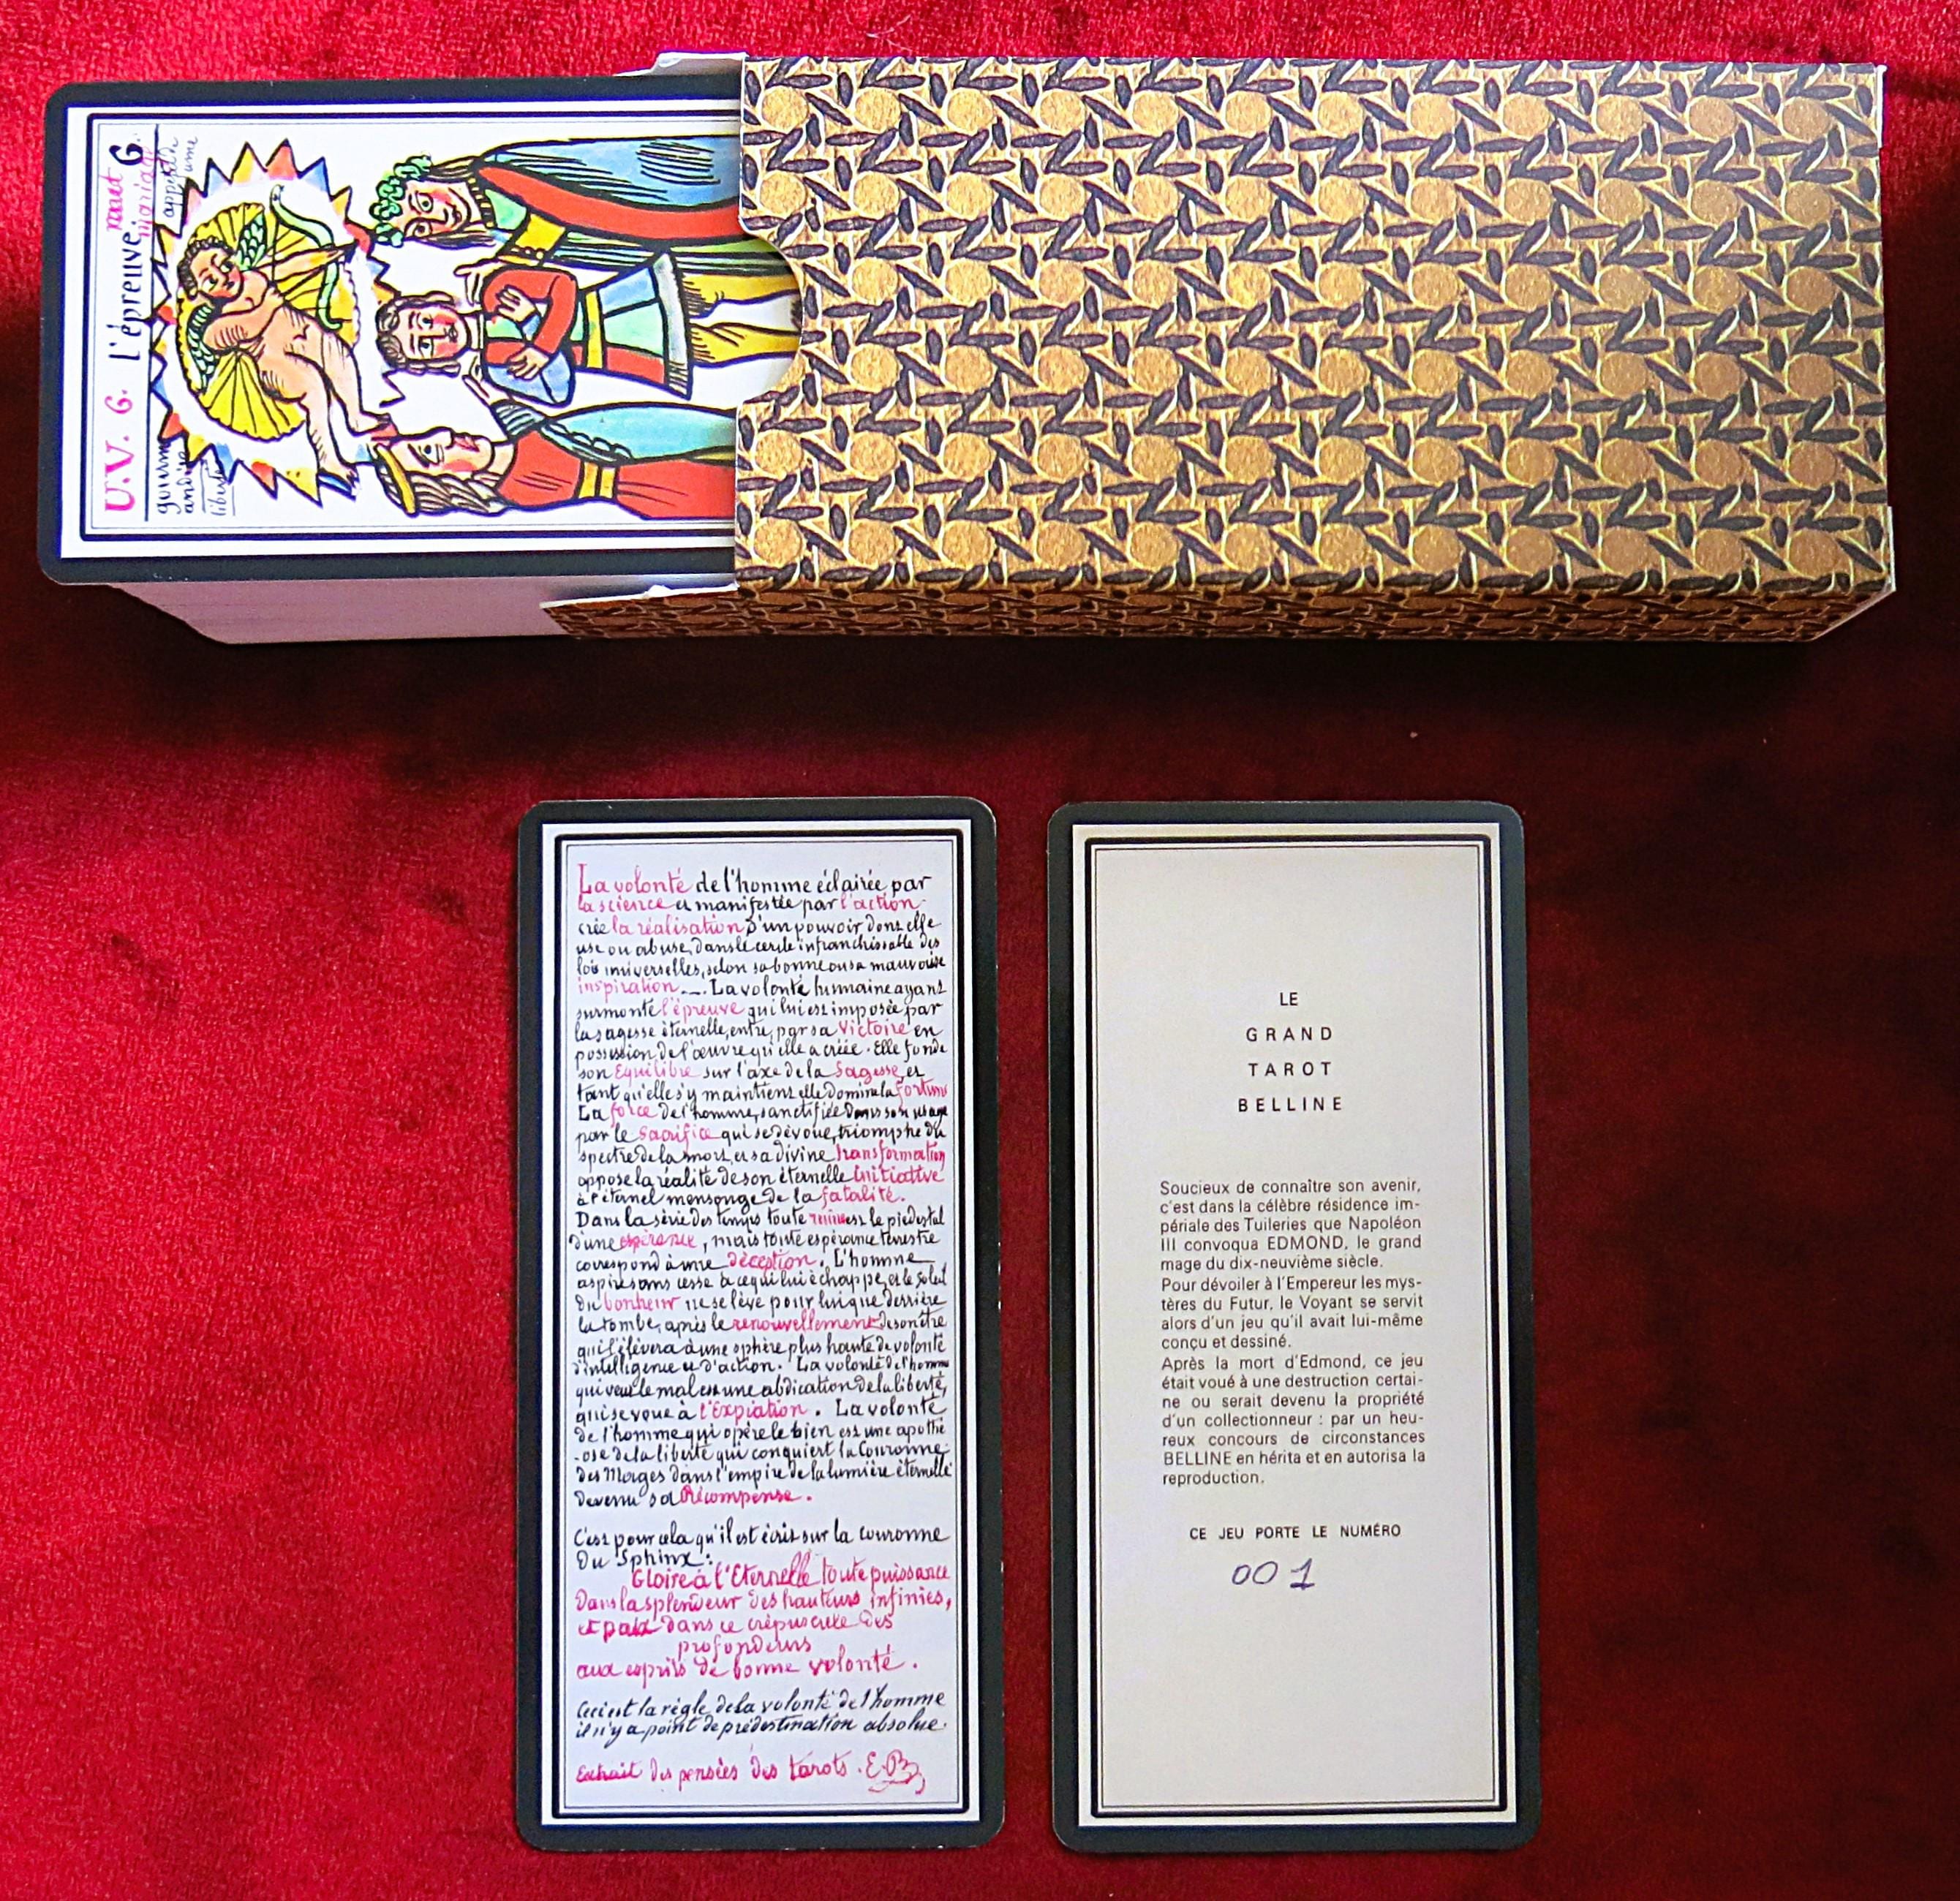 U.V. 6. l'épreuve. 6.
mariage
La volonté de l'homme éclairée par
la science et manifestée par l'action
crée la réalisation d'un pouvoir dont elle
use ou abuse, dans le cercle infranchissable des
lois universelles, selon sa bonne ou sa mauvaise
inspiration _. La volonté humaine ayant
surmonté l'épreuve qui lui est imposée par
la sagesse éternelle, entre, par sa victoire en
possession de l'œuvre qu'elle a créée. Elle fonde
son Equilibre sur l'axe de la Sagesse, et
tant qu'elle s'y maintient elle domine la fortune
La force de l'homme, sanctifiée dans son usage
par le Sacrifice qui se dévoue, triomphe du
spectre de la mort, et sa divine transformation
oppose la réalité de son éternelle initiative
à l'éternel mensonge de la fatalité.
Dans la série des temps toute ruine est le piédestal
d'une espérance, mais toute espérance terrestre
correspond à une déception. L'homme
aspire sans cesse à ce qui lui échappe, et le soleil
du bonheur ne se lève pour lui que derrière
la tombe, après le renouvellement de son être
qui l'élèvera à une sphère plus haute de volonté
d'intelligence et d'action. La volonté de l'homme
qui veut le mal est une abdication de la liberté,
qui se voue à l'Expiation. La volonté
de l'homme qui opère le bien est une apothé
-ose de la liberté qui conquiert la Couronne
des Mages dans l'empire de la lumière éternelle
devenu sa Récompense.
C'est pour cela qu'il est écrit sur la couronne
du Sphinx :
Gloire à l'Eternelle toute puissance
Dans la splendeur des hauteurs infinies,
et paix dans ce crépuscule des
profondeurs
aux esprits de bonne volonté.
Ceci est la règle de la volonté de l'homme
il n'y a point de prédestination absolue.
Extrait des pensées des tarots. E.B
LE
GRAND
TAROT
BELLINE
Soucieux de connaître son avenir,
c'est dans la célèbre résidence im-
périale des Tuileries que Napoléon
III convoqua EDMOND, le grand
mage du dix-neuvième siècle.
Pour dévoiler à l'Empereur les mys-
tères du Futur, le Voyant se servit
alors d'un jeu qu'il avait lui-même
conçu et dessiné.
Après la mort d'Edmond, ce jeu
était voué à une destruction certai-
ne ou serait devenu la propriété
d'un collectionneur : par un heu-
reux concours de circonstances
BELLINE en hérita et en autorisa la
reproduction.
CE JEU PORTE LE NUMÉRO
001